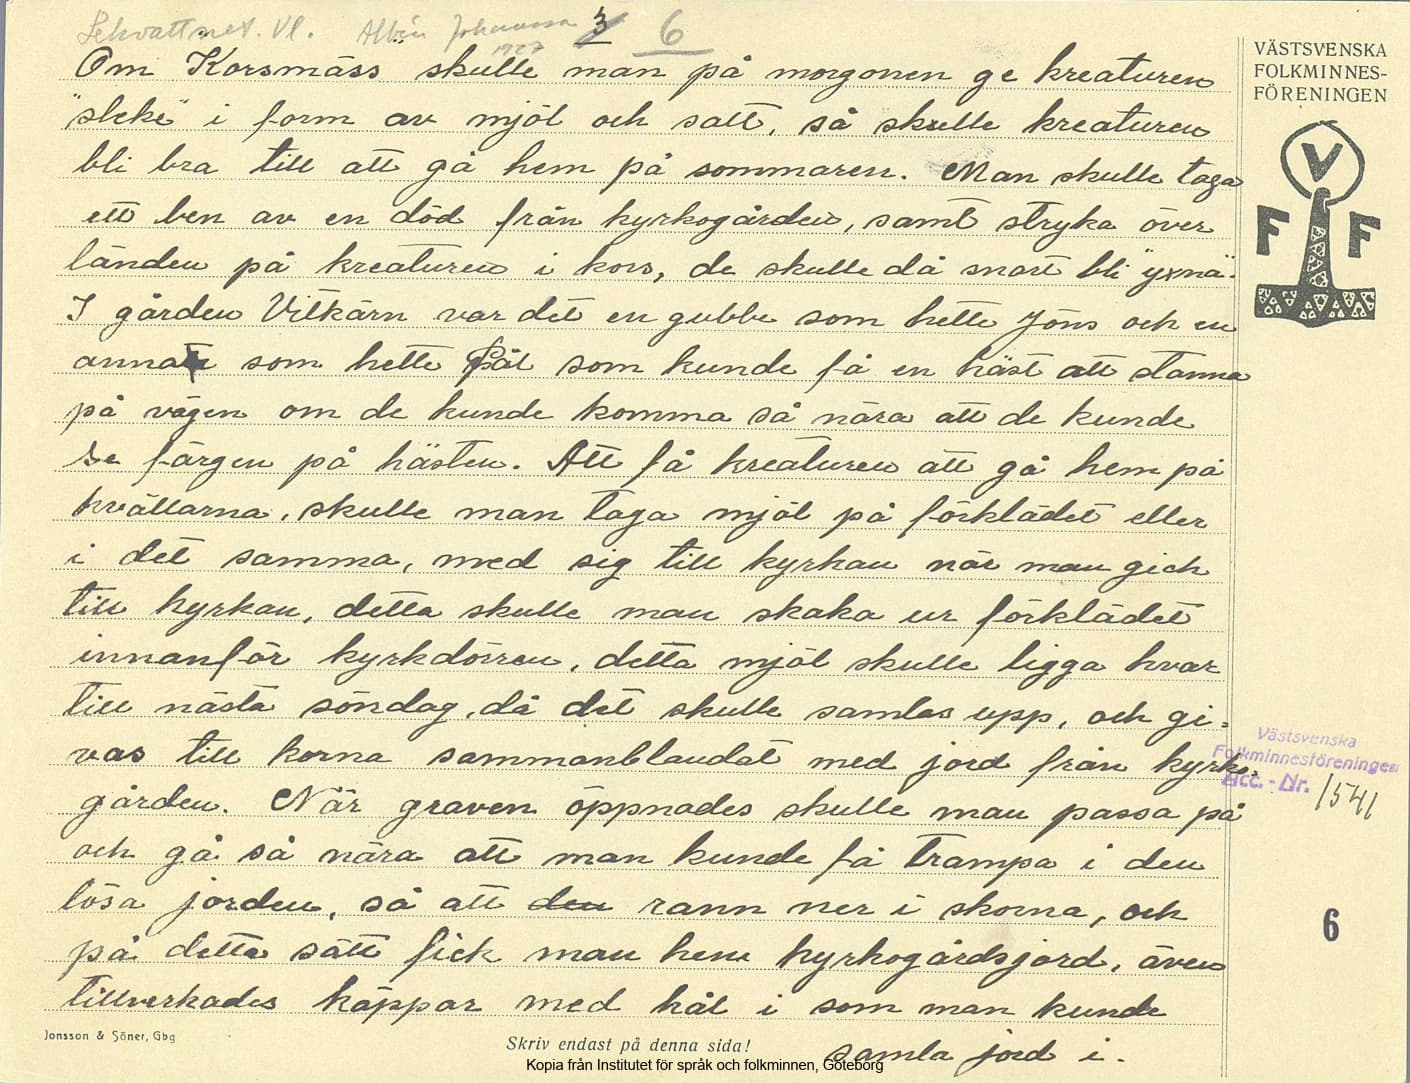 Lekvattnet. Vl. Albin Johansson 3 6
1927
VÄSTSVENSKA
FOLKMINNES-
FÖRENINGEN
V
F F
Om Korsmäss skulle man på morgonen ge kreaturen
"sleke" i form av mjöl och salt, så skulle kreaturen
bli bra till att gå hem på sommaren. Man skulle taga
ett ben av en död från kyrkogården, samt stryka över
länden på kreaturen i kors, de skulle då snart bli "yxnä".
I gården Vitkärn var det en gubbe som hette Jöns och en
annan som hette Pål som kunde få en häst att stanna
på vägen om de kunde komma så nära att de kunde
se färgen på hästen. Att få kreaturen att gå hem på
kvällarna, skulle man taga mjöl på förklädet eller
i det samma, med sig till kyrkan när man gick
till kyrkan, detta skulle man skaka ur förklädet
innanför kyrkdörren, detta mjöl skulle ligga kvar
till nästa söndag, då det skulle samlas upp, och gi-
vas till korna sammanblandat med jord från kyrko-
gården. När graven öppnades skulle man passa på
och gå så nära att man kunde få trampa i den
lösa jorden, så att den rann ner i skorna, och
på detta sätt fick man hem kyrkogårdsjord, även
tillverkades käppar med hål i som man kunde
samla jord i.
Västsvenska
Folkminnesföreningen
Acc. - Nr. 1541
6
Jonsson & Söner, Gbg
Skriv endast på denna sida!
Kopia från Institutet för språk och folkminnen, Göteborg